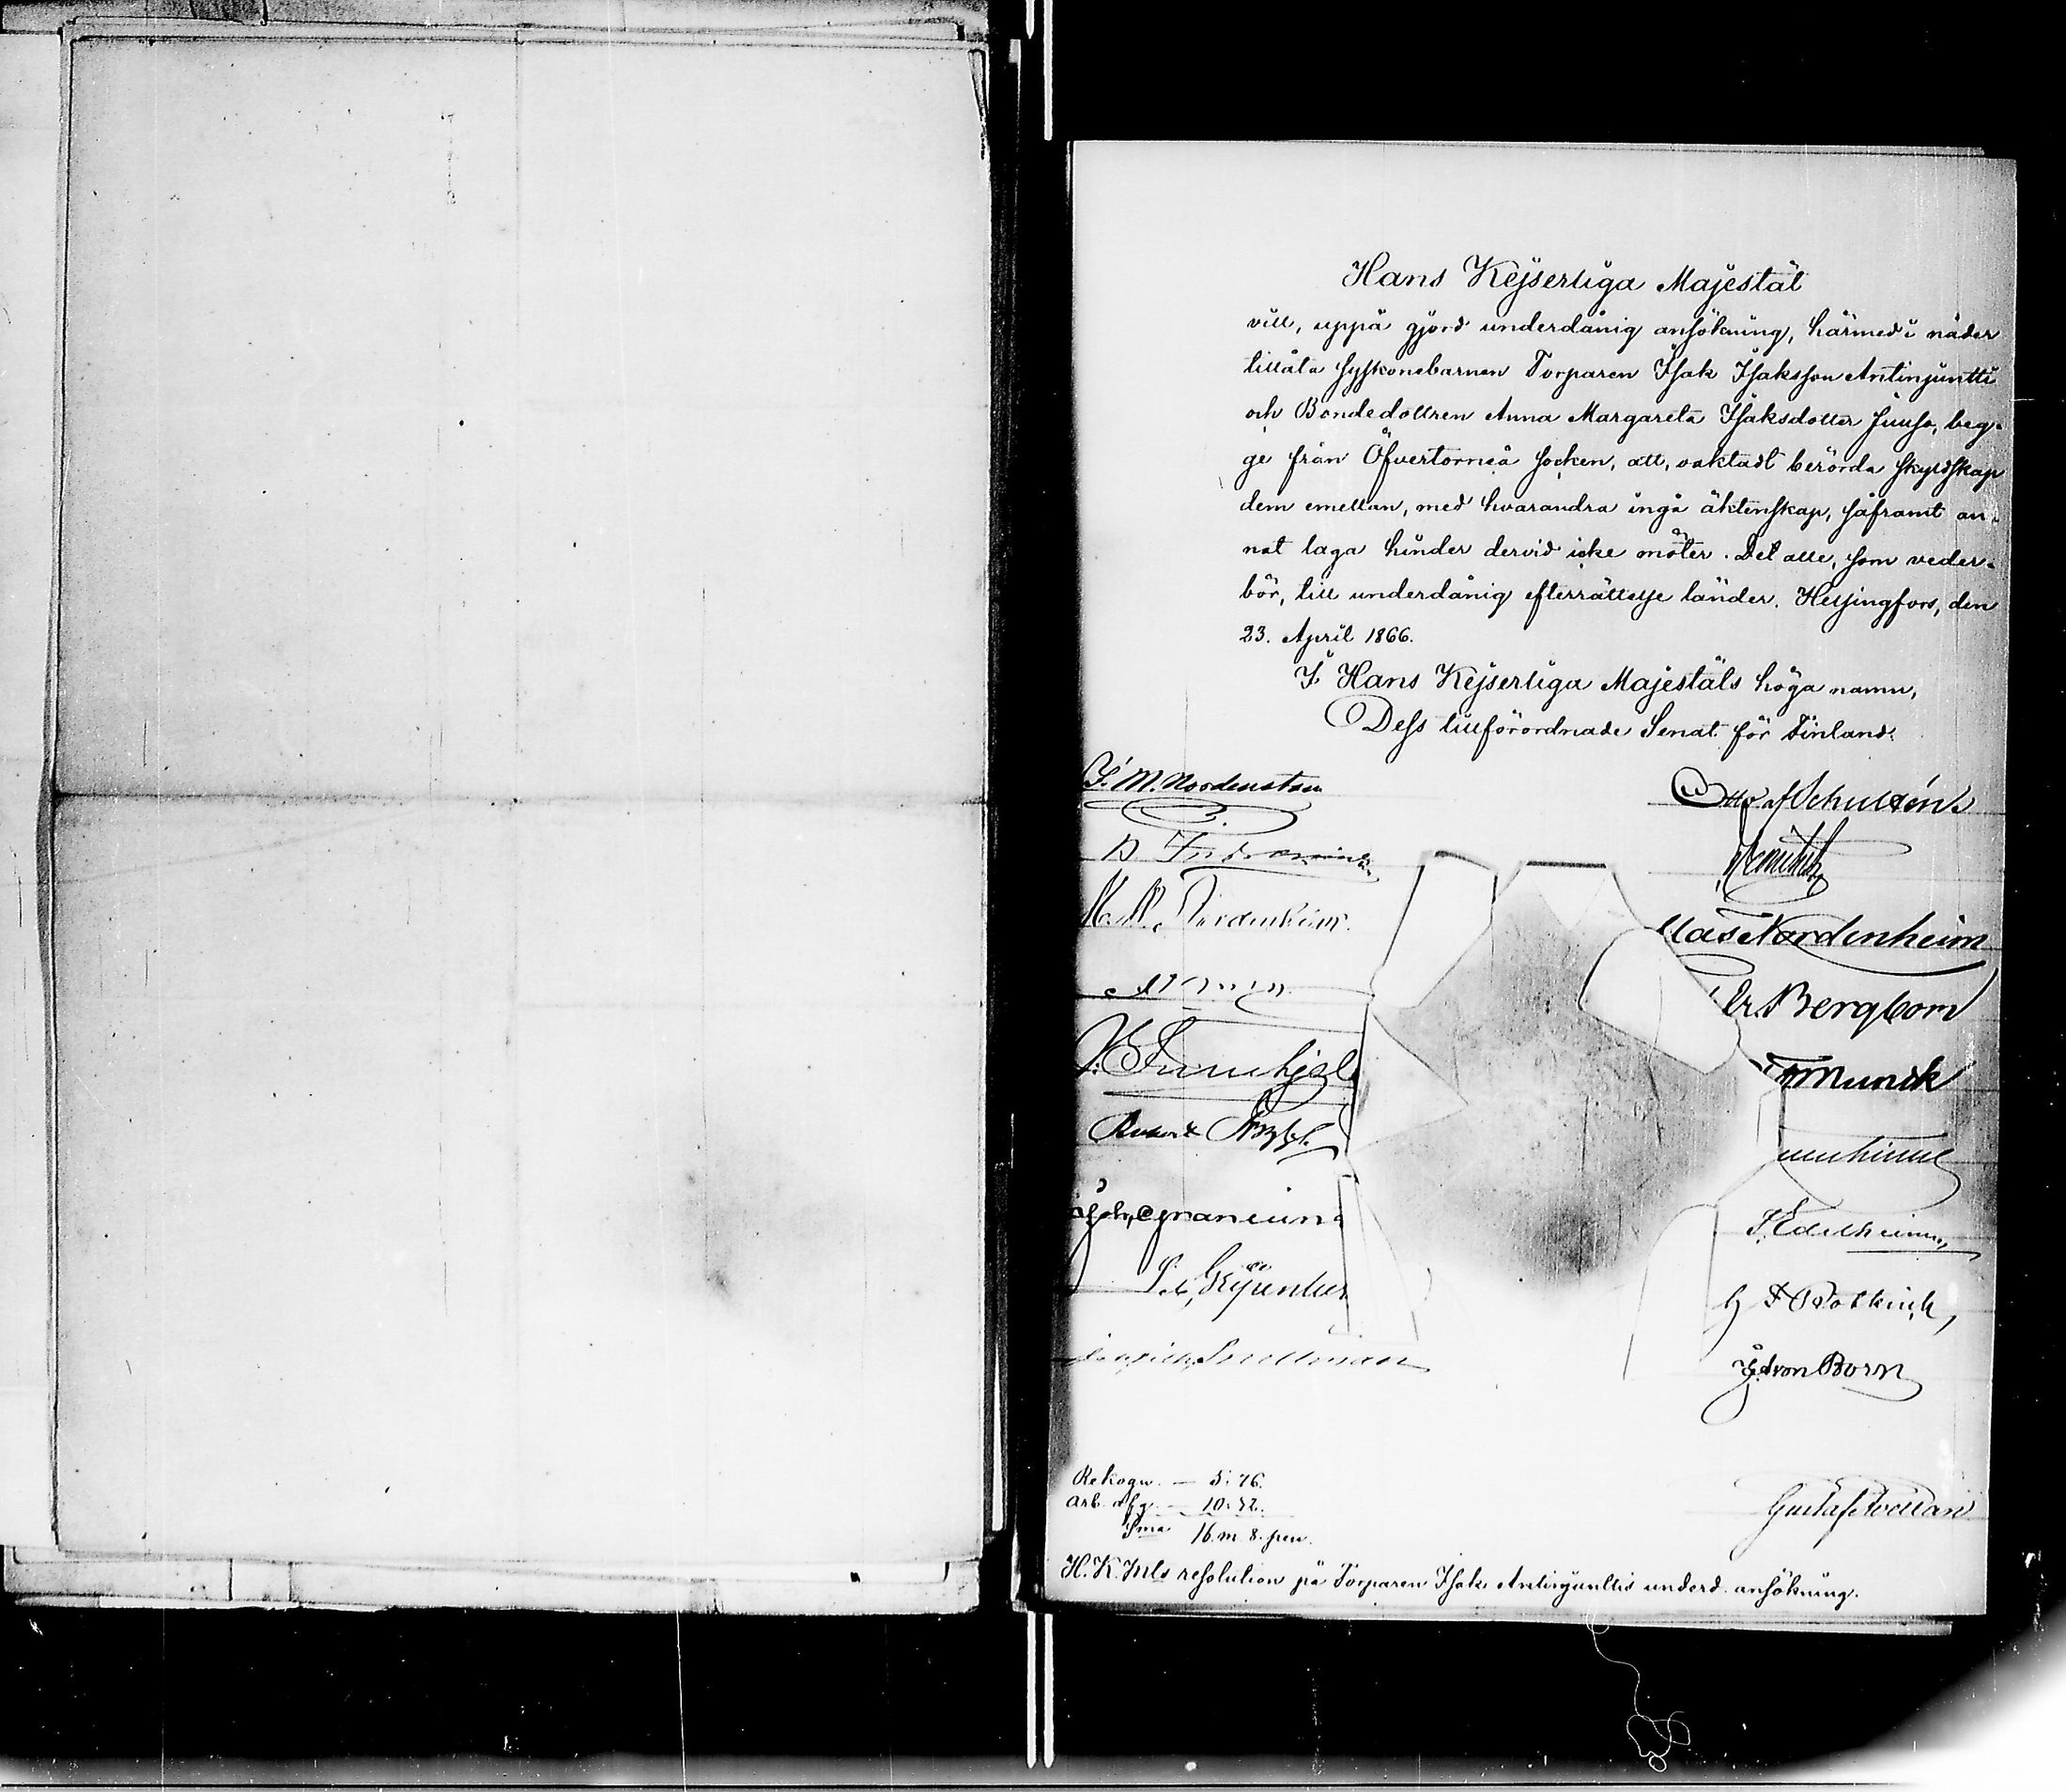 Hans Kejserliga Majestät
vill, uppå gjord underdånig ansökning, härmed i nåder
tillåta syskonebarnen Torparen Isak Isaksson Antinjuntti
och Bondedottren Anna Margareta Isaksdotter Juuso, beg-
ge från Öfvertorneå socken, att, oaktadt berörda skyldskap
dem emellan, med hvarandra ingå äktenskap, såframt an-
nat laga hinder dervid icke möter. Det alle, som veder-
bör, till underdånig efterrättelse länder. Helsingfors, den
23. April 1866.
I Hans Kejserliga Majestäts höga namn,
Dess tillförordnade Senat för Finland:
J. M. Nordenstam
Otto af Schultén
Nordenheim
Clas Nordenheim
Bergbom
Munck
Robert
Joh. Gripenberg
Edelheim
Rotkirch
Snellman
von Born
Rekogn. — 5: 76.
arb. afg. — 10: 32.
Sma 16. m 8. pen.
Gustaf
H. K. Mts resolution på Torparen Isak Antinjunttis underd. ansökning.